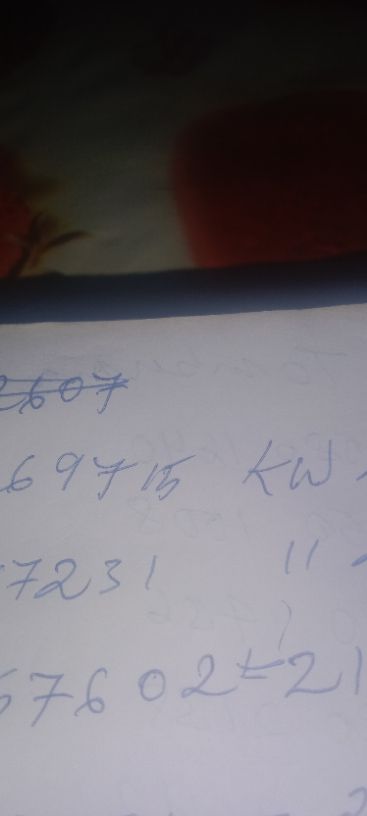 2607
69715 KW
7231 "
57602=21